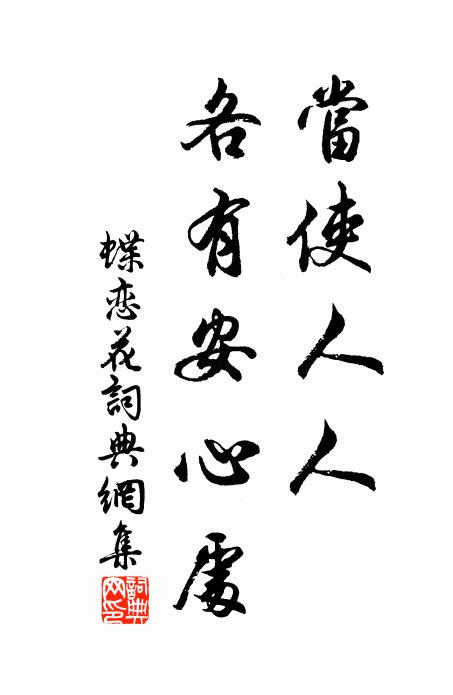 當使人人
各有安心處
蝶恋花詞典網集
詞典网印